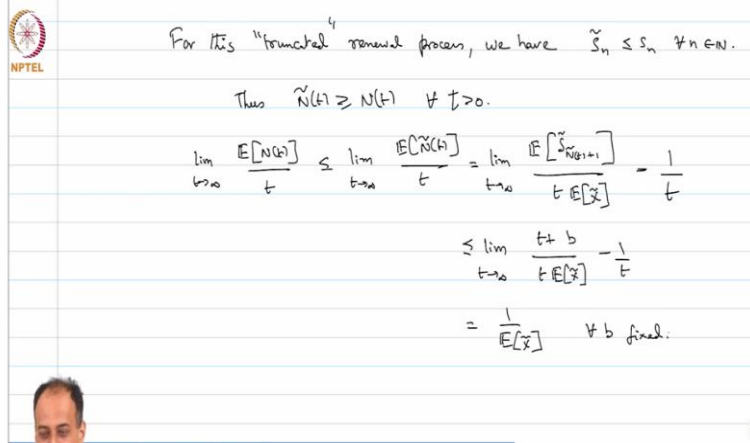 For this "truncated" renewal process, we have S̃ₙ ≤ Sₙ ∀ n ∈ ℕ.
NPTEL
Thus Ñ(t) ≥ N(t) ∀ t>0.
lim_{t→∞} E[N(t)]/t ≤ lim_{t→∞} E[Ñ(t)]/t = lim_{t→∞} E[S̃_{Ñ(t)+1}]/(t E[x̃]) - 1/t
≤ lim_{t→∞} (t+b)/(t E[x̃]) - 1/t
= 1/E[x̃] ∀ b fixed.